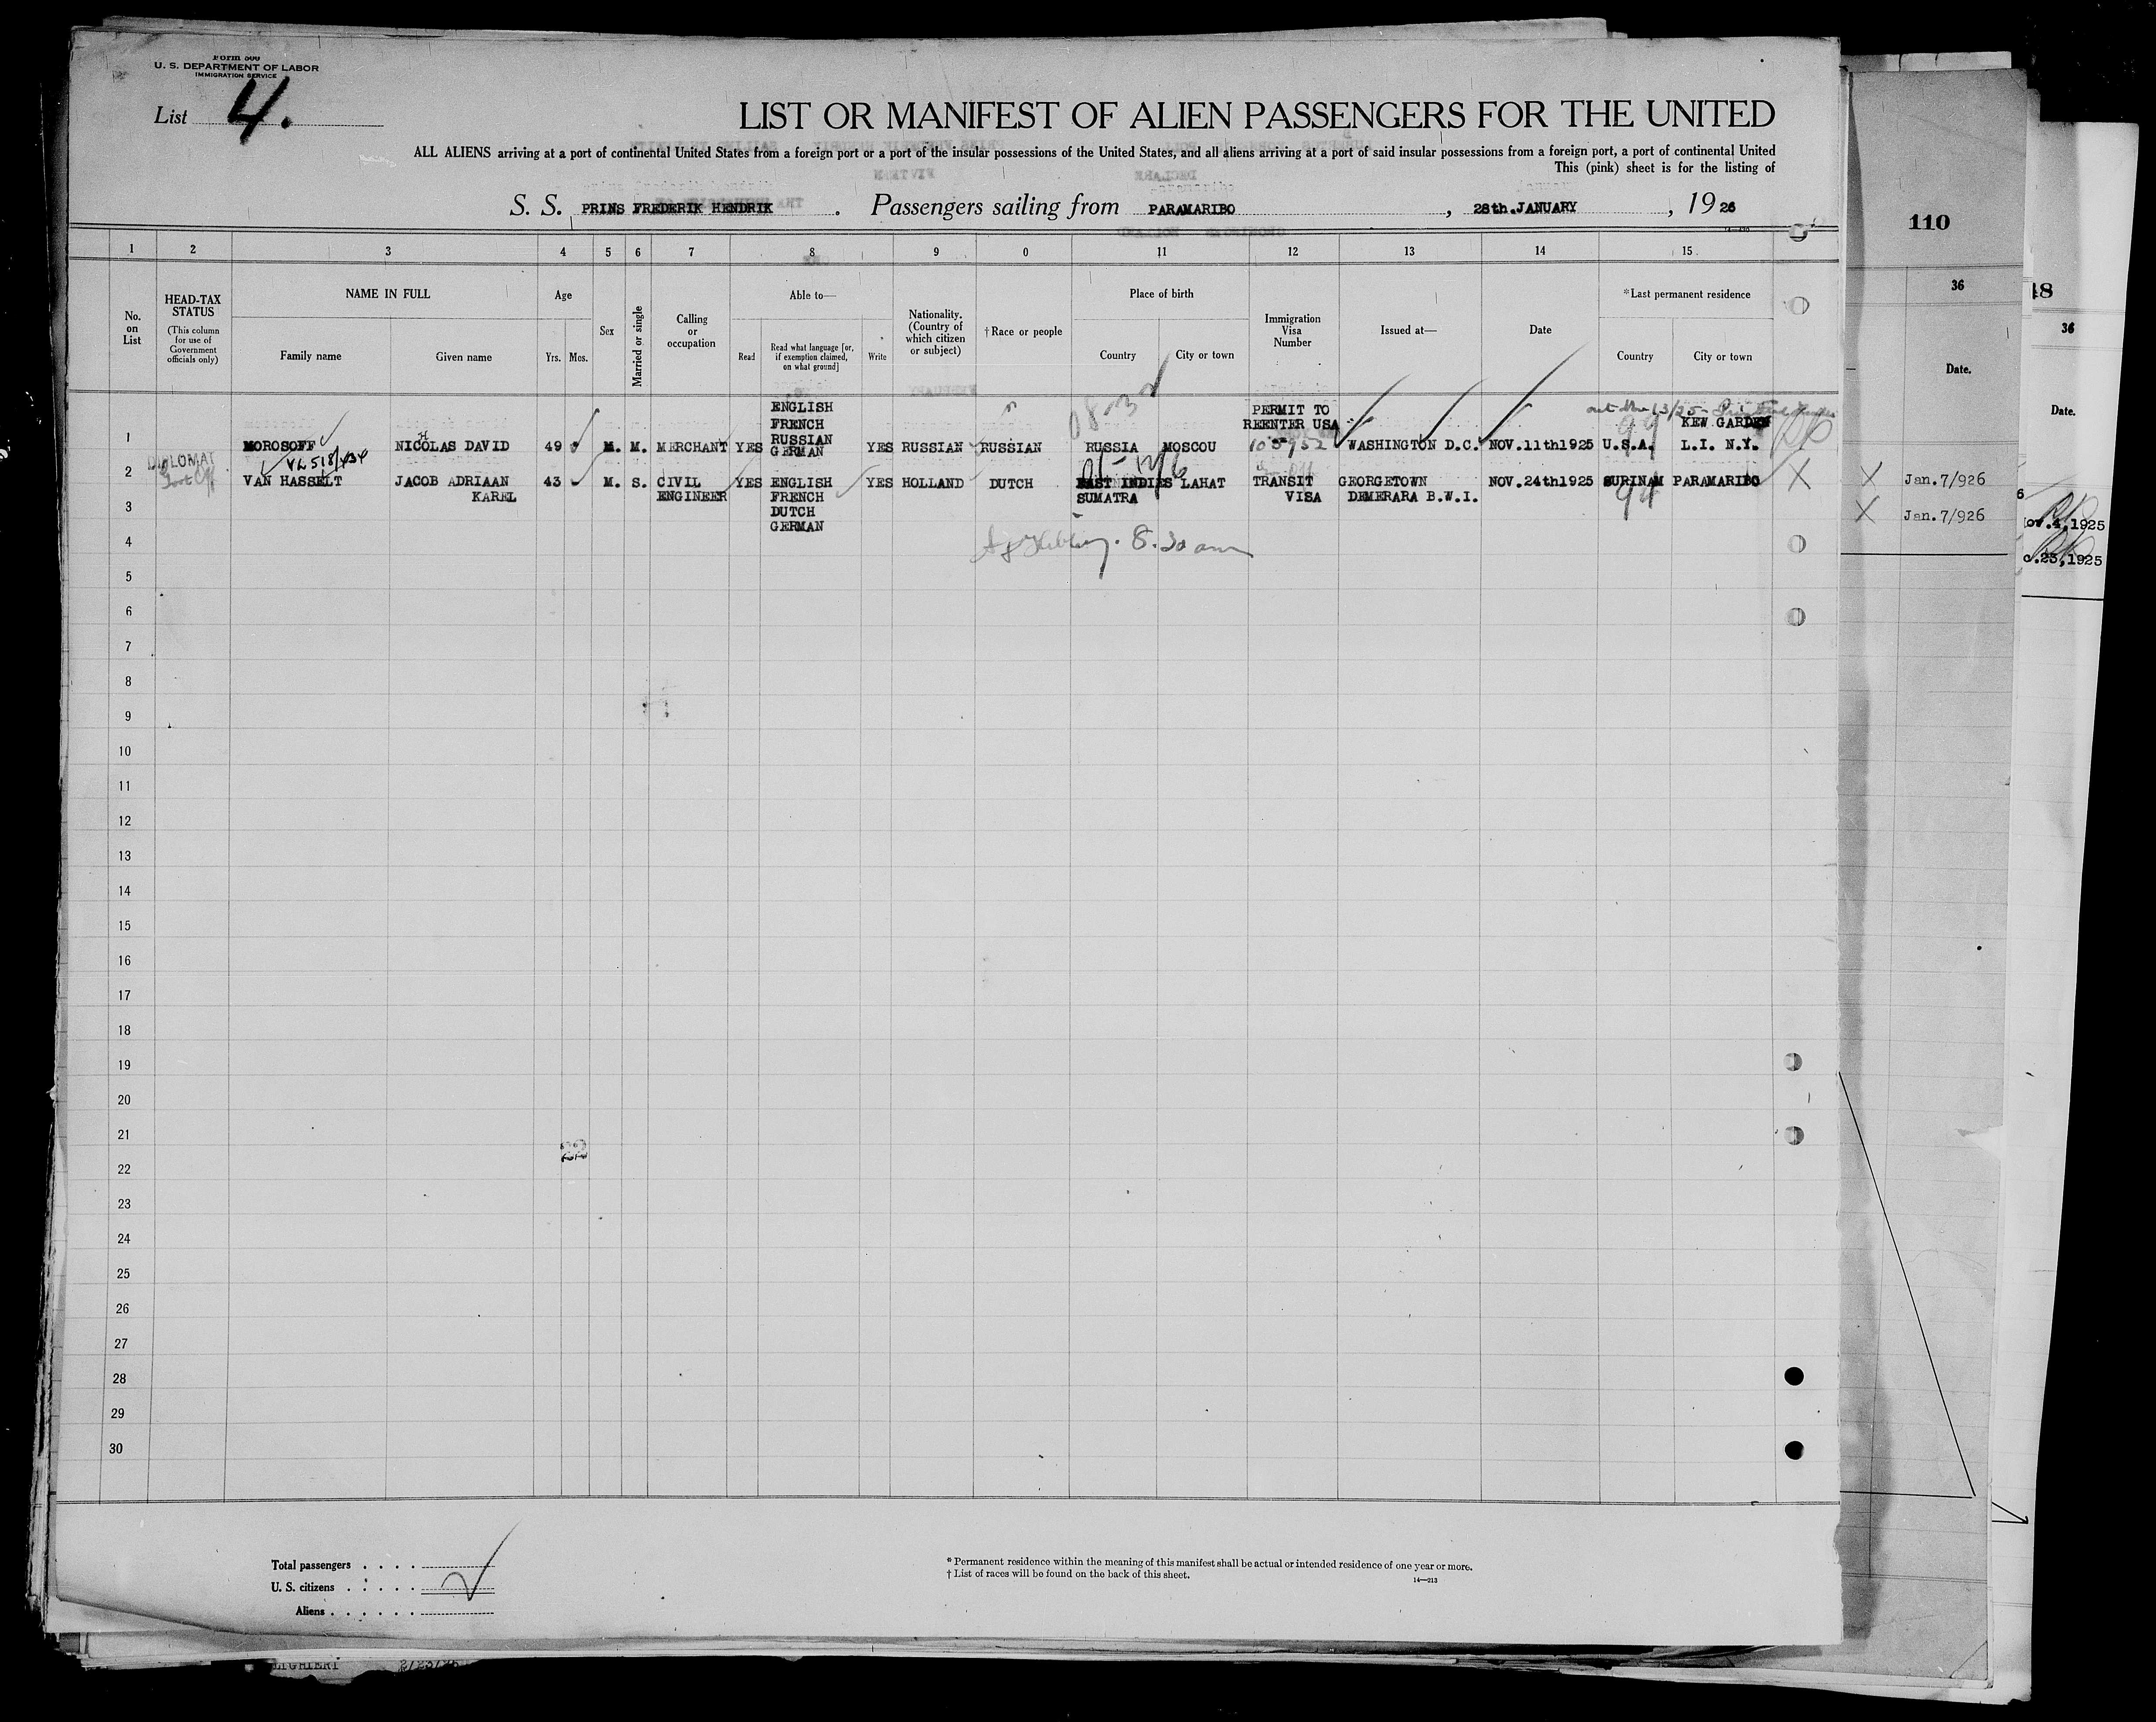 Form 500
U. S. DEPARTMENT OF LABOR
IMMIGRATION SERVICE
List 4.
LIST OR MANIFEST OF ALIEN PASSENGERS FOR THE UNITED
ALL ALIENS arriving at a port of continental United States from a foreign port or a port of the insular possessions of the United States, and all aliens arriving at a port of said insular possessions from a foreign port, a port of continental United
This (pink) sheet is for the listing of
S. S. PRINS FREDERIK HENDRIK . Passengers sailing from PARAMARIBO , 28th.JANUARY , 1926
110
1 2 3 4 5 6 7 8 9 0 11 12 13 14 15
36
18
36
No. on List
HEAD-TAX STATUS
(This column for use of Government officials only)
NAME IN FULL
Family name
Given name
Age
Yrs. Mos.
Sex
Married or single
Calling or occupation
Able to—
Read
Read what language [or, if exemption claimed, on what ground]
Write
Nationality. (Country of which citizen or subject)
† Race or people
Place of birth
Country
City or town
Immigration Visa Number
Issued at—
Date
*Last permanent residence
Country
City or town
Date.
Date.
1 MOROSOFF NICHOLAS DAVID 49 M. M. MERCHANT YES ENGLISH FRENCH RUSSIAN GERMAN YES RUSSIAN RUSSIAN RUSSIA MOSCOU PERMIT TO REENTER USA 105952 WASHINGTON D.C. NOV.11th1925 U.S.A. KEW GARDEN L.I. N.Y.
08-3
99
DIPLOMAT
VL 518/434
2 VAN HASSELT JACOB ADRIAAN KAREL 43 M. S. CIVIL ENGINEER YES ENGLISH FRENCH DUTCH GERMAN YES HOLLAND DUTCH EAST INDIES SUMATRA LAHAT TRANSIT VISA GEORGETOWN DEMERARA B.W.I. NOV.24th1925 SURINAM PARAMARIBO X
94
X Jan.7/926
X Jan.7/926
ov.4,1925
c.23,1925
8.30 am
3
4
5
6
7
8
9
10
11
12
13
14
15
16
17
18
19
20
21
22
22
23
24
25
26
27
28
29
30
Total passengers . . . .
U. S. citizens . . . . .
Aliens . . . . . .
* Permanent residence within the meaning of this manifest shall be actual or intended residence of one year or more.
† List of races will be found on the back of this sheet.
14—213